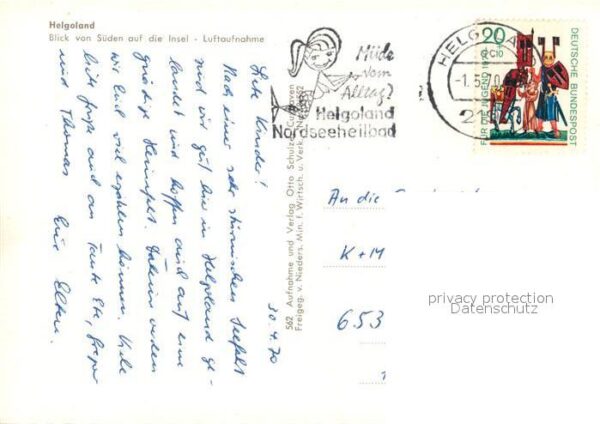 Helgoland
Blick von Süden auf die Insel - Luftaufnahme
30.4.70
Liebe Kinder!
Nach einer sehr stürmischen Seefahrt
sind wir gut hier in Helgoland ge-
landet und hoffen auch auf eine
günstige Heimfahrt. Daheim werden
wir Euch viel erzählen können. Viele
liebe Grüße auch an Tante
und Thomas Eure Eltern.
562 Aufnahme und Verlag Otto Schulze, Cuxhaven
Freigeg. v. Nieders. Min. f. Wirtsch. u. Verk.
Müde
vom
Alltag?
Helgoland
Nordseeheilbad
HELGOLA
-1.5.70
20
+10
FÜR DIE JUGEND 1970
DEUTSCHE BUNDESPOST
An die
653
privacy protection
Datenschutz